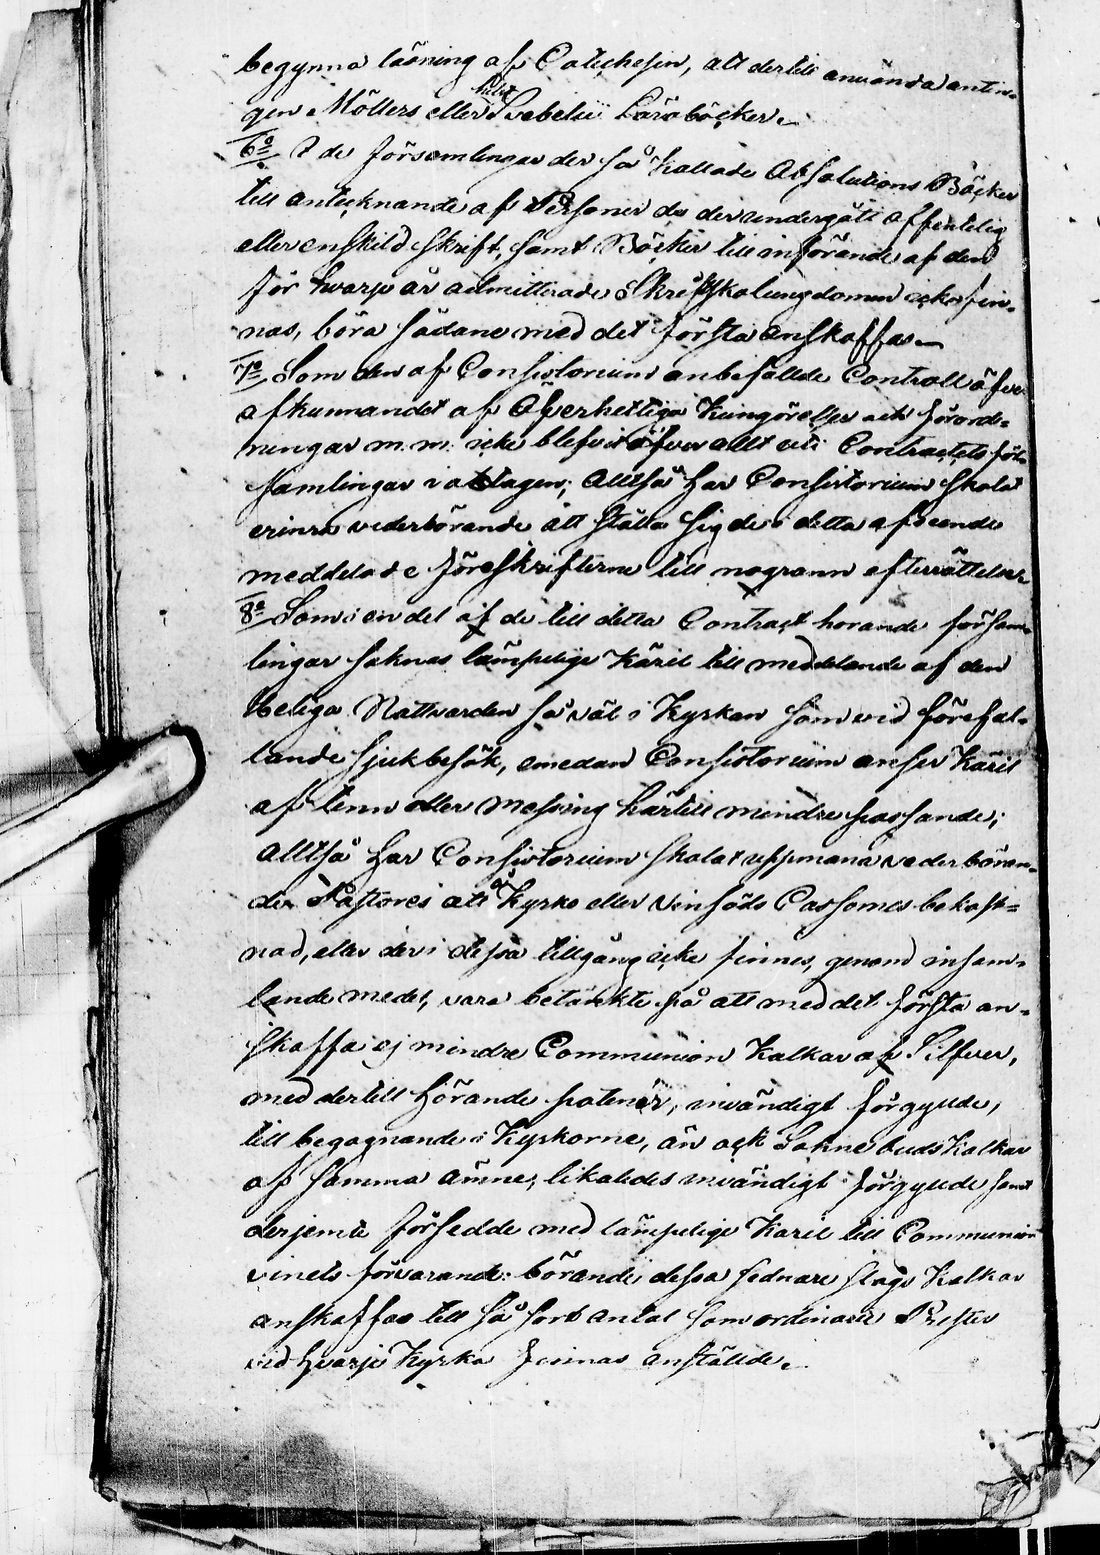 begynna läsning af Catechesin, att dertill använda antin-
gen Möllers eller Svebelii Läroböcker.
6º I de Församlingar der så kallade Absolutions Böcker
till antecknande af Personer de der undergått offentelig
eller enskild Skrift, samt Böcker till införande af den
för hvarje år admitterade Skriftskolungdomen icke fin-
nas, böra sådane med det första anskaffas.
7º Som den af Consistorium anbefallde Controll öfver
afkunnandet af Öfverhetliga Kungörelser och Förord-
ningar m.m. icke blifvit öfver allt uti Contractets För-
samlingar iakttagen; Alltså har Consistorium skolat
erinra vederbörande att ställa sig de i detta afseende
meddelade Föreskrifterne till nogrann efterrättelse
8º Som i en del af de till detta Contract horande försam-
lingar saknas lämpelige Käril till meddelande af den
Heliga Nattvarden så väl i Kyrkan som vid förefal-
lande sjukbesök, emedan Consistorium anser Käril
af tenn eller messing härtill mindre passande;
Alltså har Consistorium skolat uppmana vederböran-
de Pastores att på Kyrko eller Vinsäds Cassornes bekost-
nad, eller der i dessa tillgång icke finnes, genom insam-
lande medel, vara betänkte på att med det första an-
skaffa ej mindre Communion Kalkar af Silfver,
med dertill hörande patener, invändigt förgyllde,
till begagnande i Kyrkorne, än ock Sokne buds Kalkar
af samma ämne, likaledes invändigt förgyllde samt
derjemte försedde med lämpelige Käril till Communion
vinets förvarande: börande dessa sednare slags Kalkar
anskaffas till så stort antal som ordinarie Prester
vid hvarje Kyrka finnas anställde.